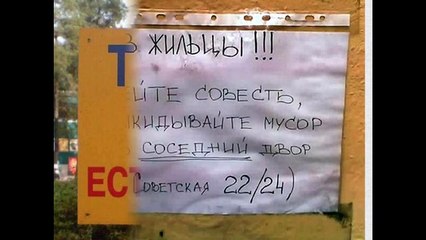 З ЖИЛЬЦЫ!!!
Т
ЙТЕ СОВЕСТЬ,
КИДЫВАЙТЕ МУСОР
СОСЕДНИЙ ДВОР
ЕСТ
СОВЕТСКАЯ 22/24)